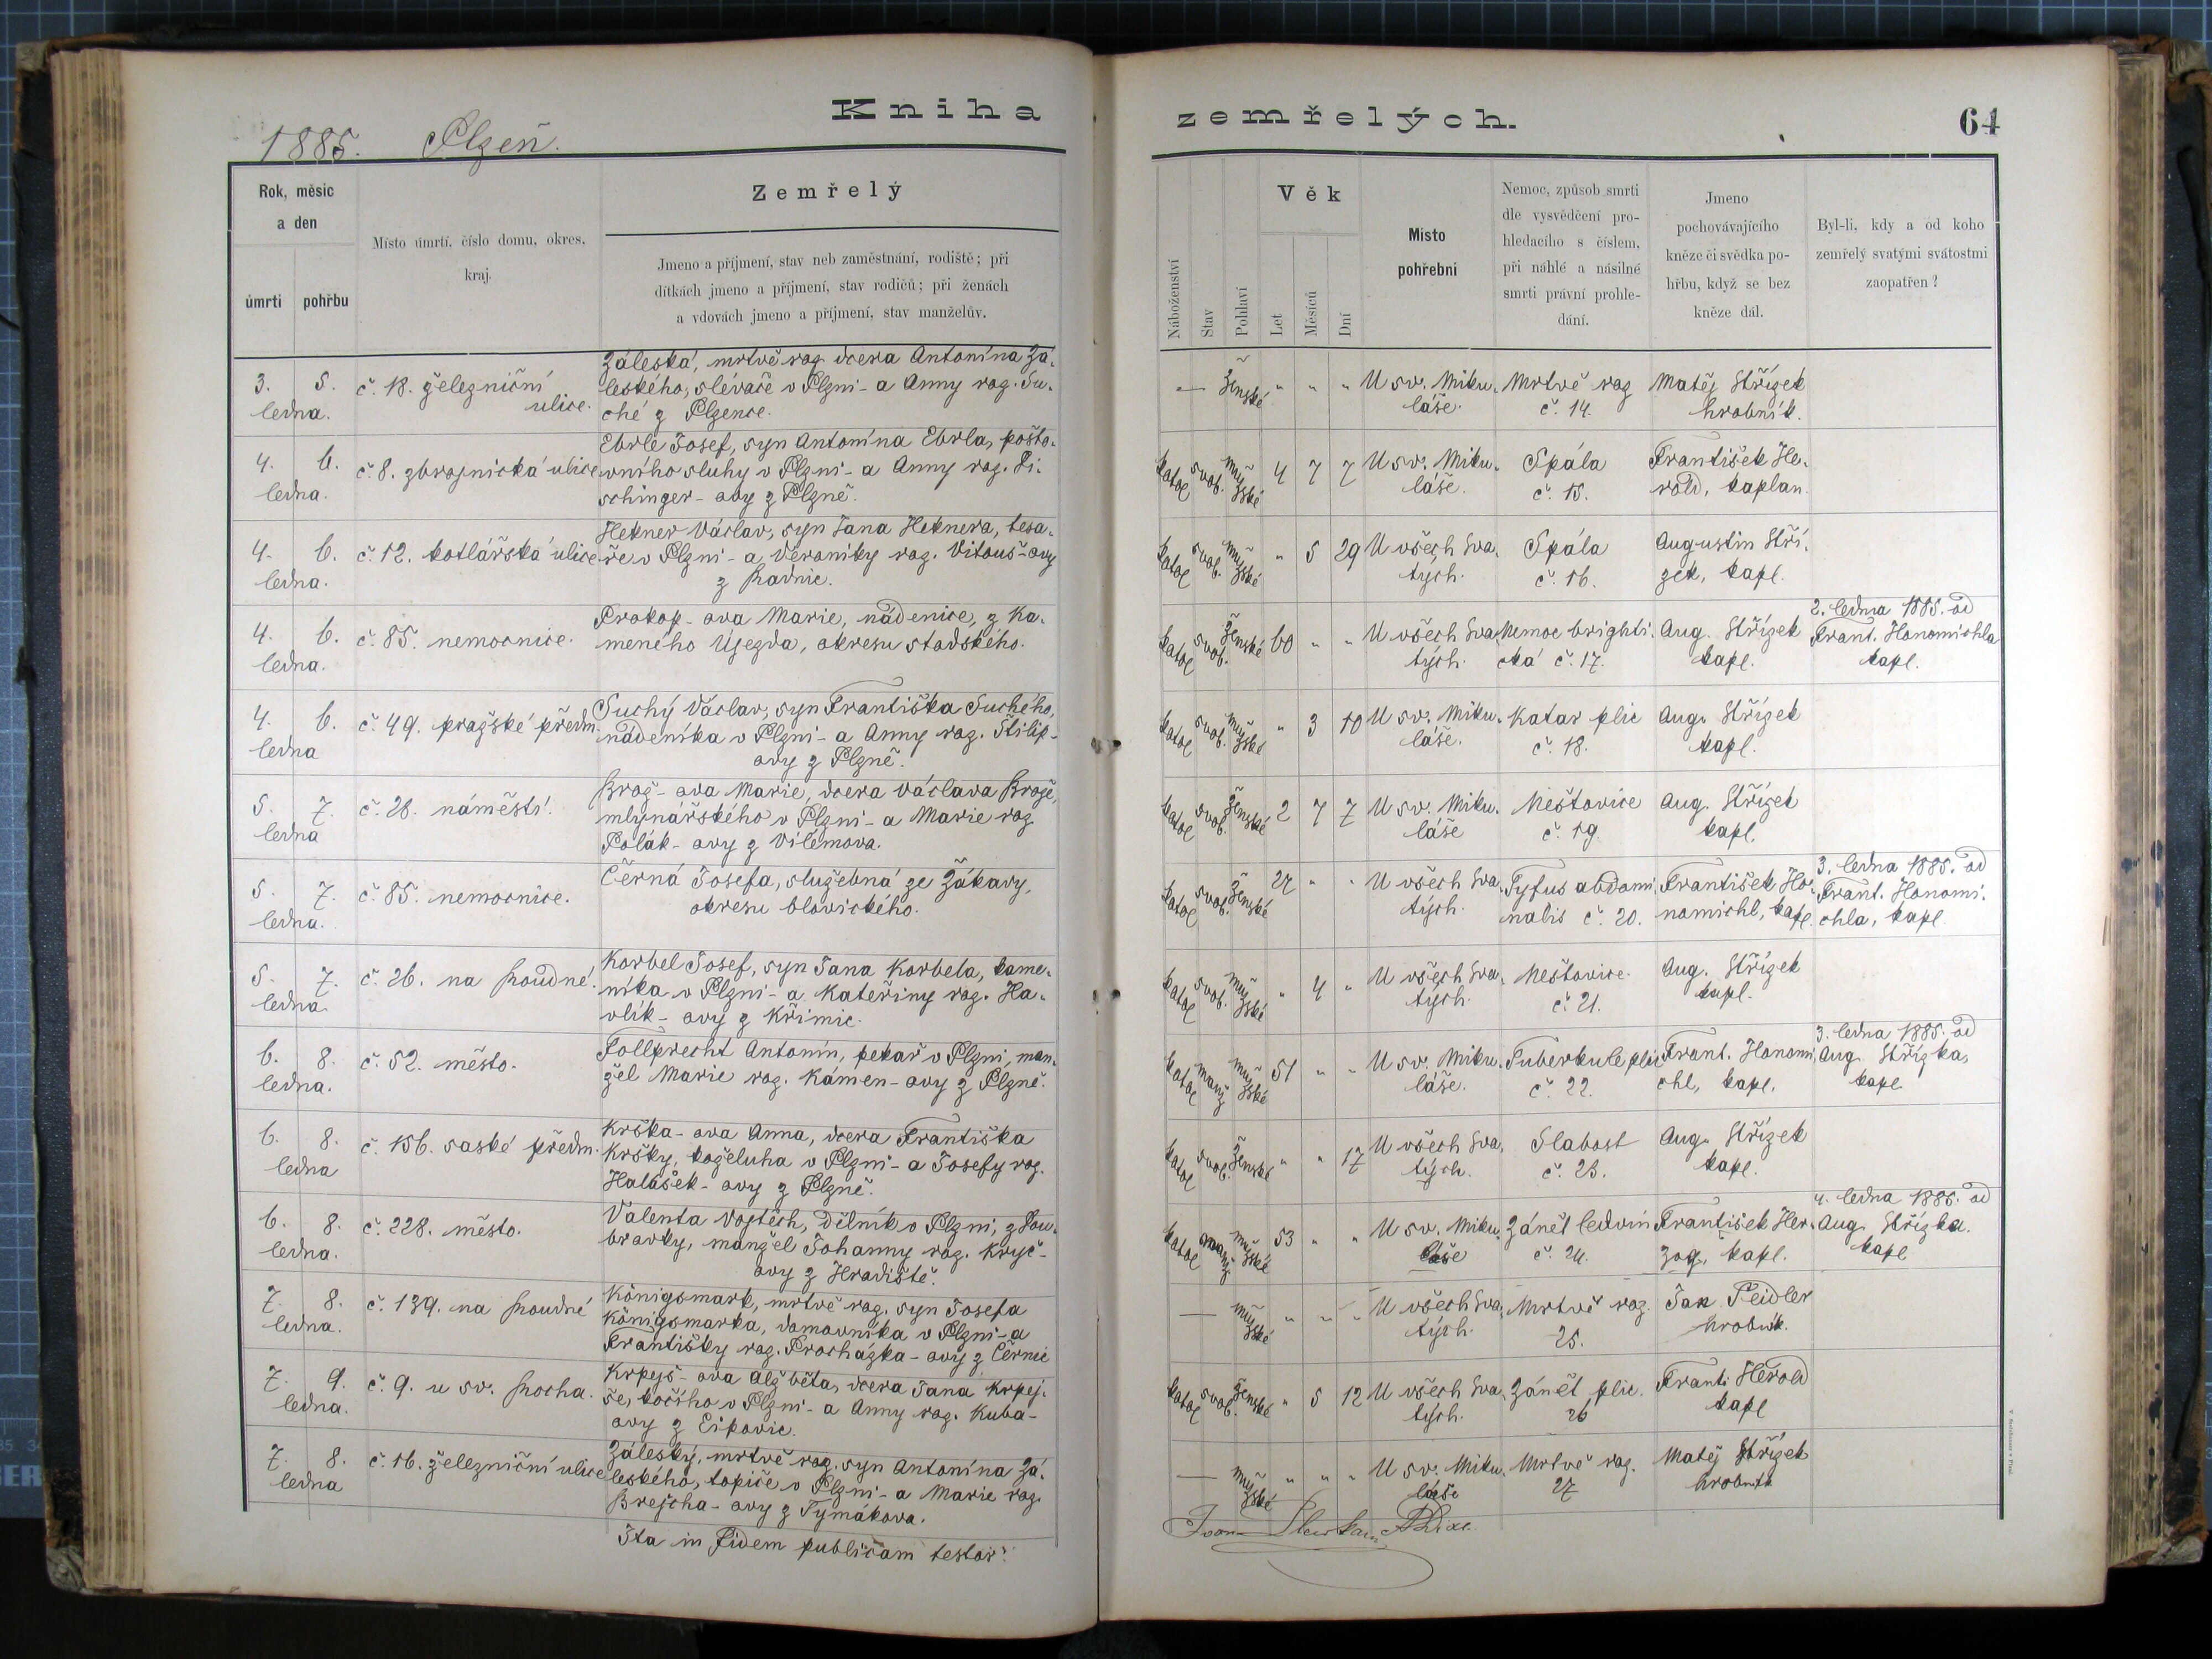 Kniha
1885. Plzeň.
Rok, měsíc
a den
úmrtí pohřbu
Místo úmrtí, číslo domu, okres,
kraj.
Zemřelý
Jmeno a příjmení, stav neb zaměstnání, rodiště; při
dítkách jmeno a příjmení, stav rodičů; při ženách
a vdovách jmeno a příjmení, stav manželův.
3. 5.
ledna.
č. 18. železniční
ulice.
Záleská, mrtvě roz. dcera Antonína Zá-
leského, slévače v Plzni - a Anny roz. Su-
ché z Plzence.
4. 6.
ledna.
č. 8. zbrojnická ulice
Ebrle Josef, syn Antonína Ebrla, pošto-
vního sluhy v Plzni - a Anny roz. Fi-
schinger-ovy z Plzně.
4. 6.
ledna.
č. 12. kotlářská ulice
Hekner Václav, syn Jana Heknera, tesa-
ře v Plzni - a Veroniky roz. Vitouš-ovy
z Radnic.
4. 6.
ledna.
č. 85. nemocnice.
Prokop-ova Marie, nádenice, z Ka-
meného Újezda, okresu stodského.
4. 6.
ledna
č. 49. pražské předm.
Suchý Václav, syn Františka Suchého,
nádeníka v Plzni - a Anny roz. Štilip-
ovy z Plzně.
5. 7.
ledna
č. 28. náměstí.
Brož-ova Marie, dcera Václava Brože,
mlynářského v Plzni - a Marie roz
Polák-ovy z Vilémova.
5. 7.
ledna.
č. 85. nemocnice.
Černá Josefa, služebná ze Žákavy,
okresu blovického.
5. 7.
ledna
č. 26. na Roudné.
Korbel Josef, syn Jana Korbela, kame-
níka v Plzni - a Kateřiny roz. Ha-
vlík-ovy z Křimic.
6. 8.
ledna.
č. 52. město.
Follprecht Antonín, pekař v Plzni, man-
žel Marie roz. Kámen-ovy z Plzně.
6. 8.
ledna
č. 156. saské předm.
Krška-ova Anna, dcera Františka
Kršky, koželuha v Plzni - a Josefy roz.
Halášek-ovy z Plzně.
6. 8.
ledna.
č. 228. město.
Valenta Vojtěch, dělník v Plzni, z Dou-
bravky, manžel Johanny roz. Kryč-
ovy z Hradiště.
7. 8.
ledna.
č. 139. na Roudné
Königsmark, mrtvě roz. syn Josefa
Königsmarka, domovníka v Plzni - a
Františky roz. Procházka-ovy z Černic
7. 9.
ledna.
č. 9. u sv. Rocha.
Krpejš-ova Alžběta, dcera Jana Krpej-
še, kočího v Plzni - a Anny roz. Kuba-
ovy z Eipovic.
7. 8.
ledna
č. 16. železniční ulice
Záleský, mrtvě roz. syn Antonína Zá-
leského, topiče v Plzni - a Marie roz.
Brejcha-ovy z Tymákova.
Ita in fidem publicam testor:
zemřelých.
64
Náboženství
Stav
Pohlaví
Věk
Let
Měsíců
Dní
Místo
pohřební
Nemoc, způsob smrti
dle vysvědčení pro-
hledacího s číslem,
při náhlé a násilné
smrti právní prohle-
dání.
Jmeno
pochovávajícího
kněze či svědka po-
hřbu, když se bez
kněze dál.
Byl-li, kdy a od koho
zemřelý svatými svátostmi
zaopatřen?
— ženské " " " U sv. Miku- Mrtvě roz Matěj Střízek
láše. č. 14. hrobník.
katol svob. mužské 4 7 7 U sv. Miku- Spála František He-
láše. č. 15. rold, kaplan.
katol svob. mužské " 5 29 U všech Sva- Spála Augustin Stří-
tých. č. 16. zek, kapl.
2. ledna 1885. od
katol svob. ženské 60 " " U všech Sva- Nemoc brighti- Aug. Střízek Frant. Honomichla
tých. cká č. 17. kapl. kapl.
katol svob. mužské " 3 10 U sv. Miku- Katar plic Aug. Střízek
láše. č. 18. kapl.
katol svob. ženské 2 7 7 U sv. Miku- Neštovice Aug. Střízek
láše č. 19. kapl.
3. ledna 1885. od
katol svob. ženské 27 " " U všech Sva- Tyfus abdomi- František Ho- Frant. Honomi-
tých. nalis č. 20. nomichl, kapl. chla, kapl.
katol svob. mužské " 4 " U všech Sva- Neštovice. Aug. Střízek
tých. č. 21. kapl.
3. ledna 1885. od
katol manž mužské 51 " " U sv. Miku- Tuberkule plic Frant. Honomi- Aug. Střízka,
láše. č. 22. chl, kapl. kapl
katol svob. ženské " " 17 U všech Sva- Slabost Aug. Střízek
tých. č. 23. kapl.
4. ledna 1885. od
katol manž mužské 53 " " U sv. Miku- Zánět ledvin František Her- Aug. Střízka.
láše č. 24. zog, kapl. kapl
— mužské " " " U všech Sva- Mrtvě roz. Jan Feidler
tých. 25. hrobník.
katol svob. ženské " 5 12 U všech Sva- Zánět plic. Frant. Herold
tých. 26 kapl
— mužské " " " U sv. Miku- Mrtvě roz. Matěj Střízek
láše 27 hrobník